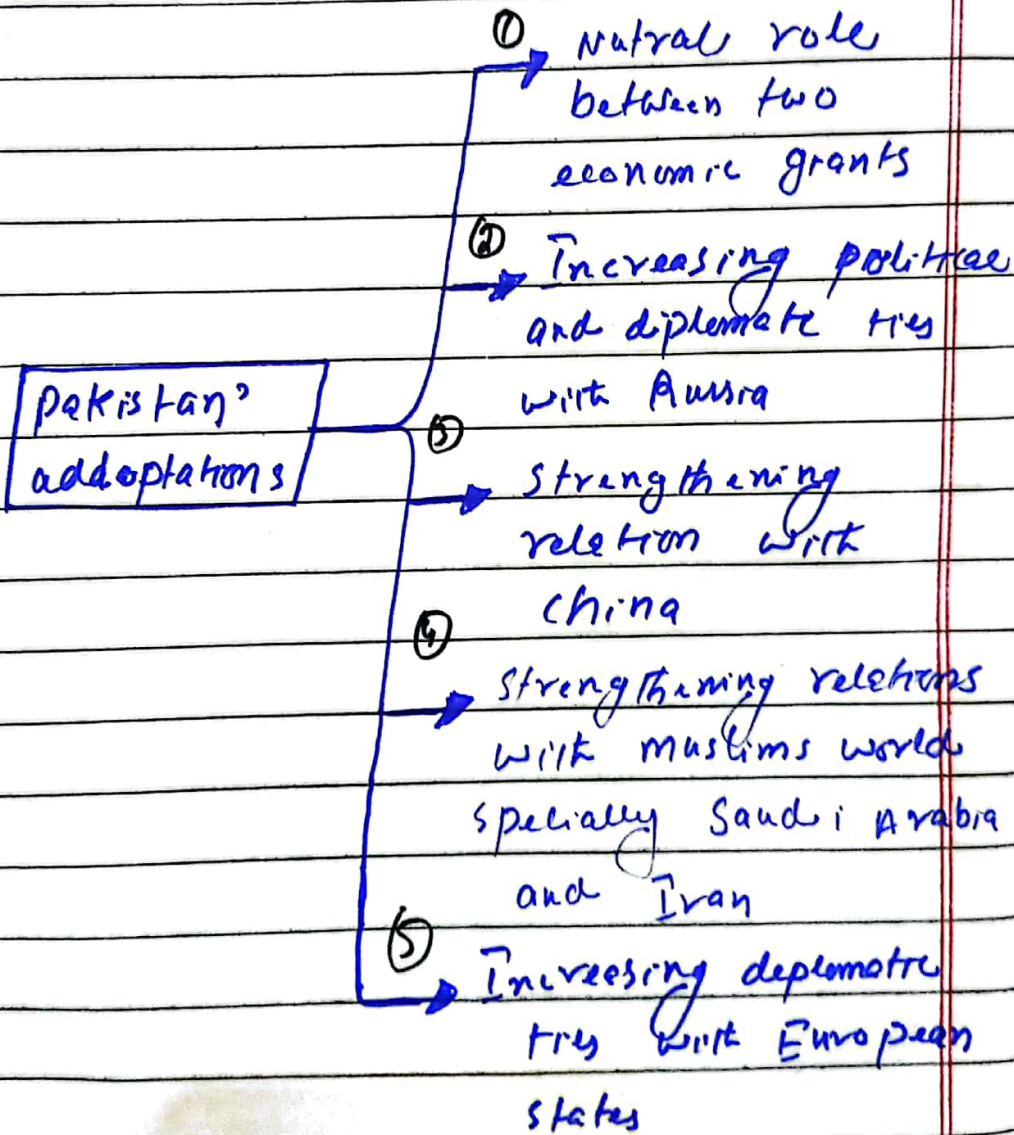 ① Nutral role
between two
economic grants
② Increasing political
and diplomate ties
with Russia
Pakistan'
addoptations
③ Strengthening
relation with
China
④ Strengthening relations
with muslims world
specially Saudi Arabia
and Iran
⑤ Increesing deplomatic
ties with European
states